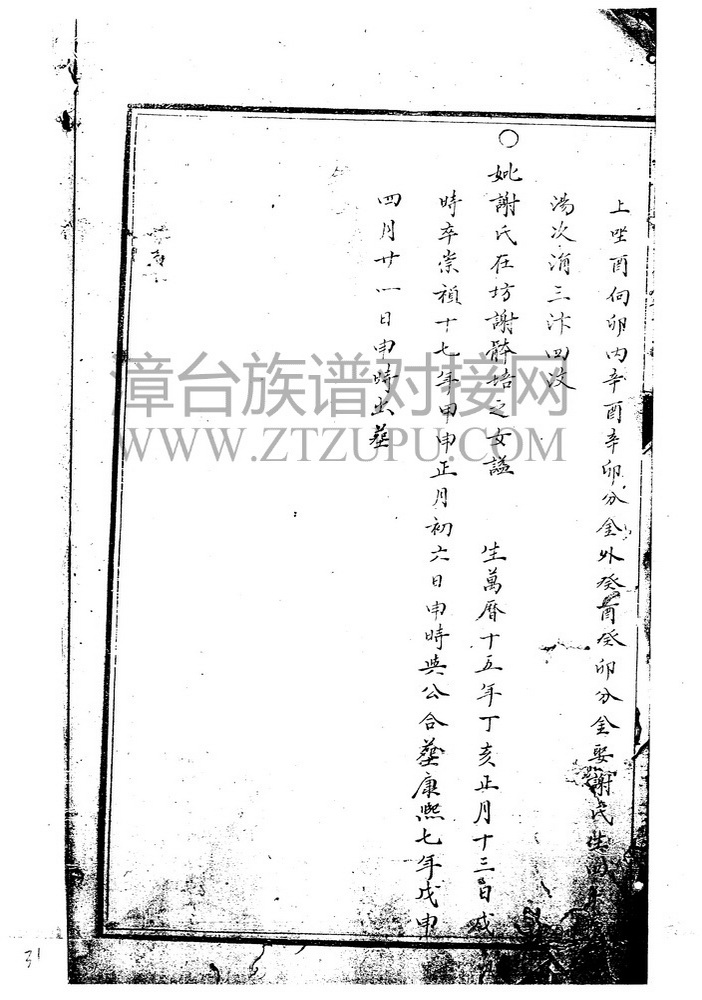 上坐酉向卯內辛酉辛卯分金外癸酉癸卯分金娶謝氏生四
湯次涓三汴四汶
○妣謝氏在坊謝體培之女謚 生萬曆十五年丁亥正月十三日戌
時卒崇禎十七年甲申正月初六日申時與公合葬康熙七年戊申
四月廿一日申時出葬
漳台族谱对接网
WWW.ZTZUPU.COM
31